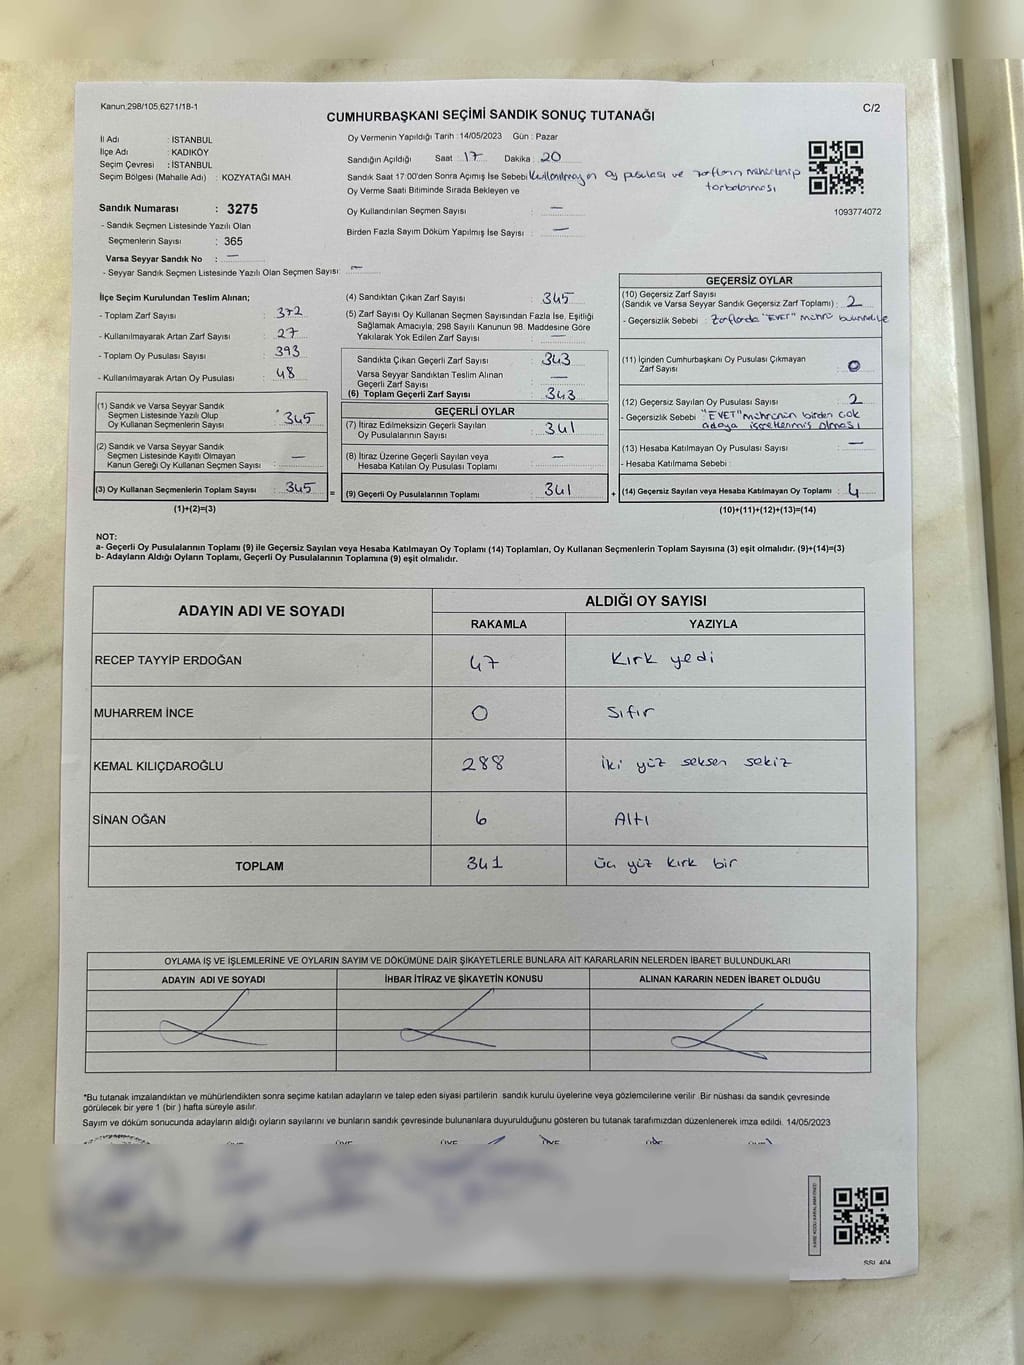 Kanun,298/105,6271/18-1
C/2
CUMHURBAŞKANI SEÇİMİ SANDIK SONUÇ TUTANAĞI
İl Adı : İSTANBUL
İlçe Adı : KADIKÖY
Seçim Çevresi : İSTANBUL
Seçim Bölgesi (Mahalle Adı) : KOZYATAĞI MAH.
Sandık Numarası : 3275
- Sandık Seçmen Listesinde Yazılı Olan
Seçmenlerin Sayısı : 365
Varsa Seyyar Sandık No : —
- Seyyar Sandık Seçmen Listesinde Yazılı Olan Seçmen Sayısı: —
Oy Vermenin Yapıldığı Tarih :14/05/2023 Gün : Pazar
Sandığın Açıldığı Saat : 17 Dakika : 20
Sandık Saat 17:00'den Sonra Açımış İse Sebebi: Kullanılmayan oy pusulası ve zarfların mühürlenip
torbalanması
Oy Verme Saati Bitiminde Sırada Bekleyen ve
Oy Kullandırılan Seçmen Sayısı : —
Birden Fazla Sayım Döküm Yapılmış İse Sayısı : —
1093774072
İlçe Seçim Kurulundan Teslim Alınan;
- Toplam Zarf Sayısı : 372
- Kullanılmayarak Artan Zarf Sayısı : 27
- Toplam Oy Pusulası Sayısı : 393
- Kullanılmayarak Artan Oy Pusulası : 48
(1) Sandık ve Varsa Seyyar Sandık
Seçmen Listesinde Yazılı Olup
Oy Kullanan Seçmenlerin Sayısı : 345
(2) Sandık ve Varsa Seyyar Sandık
Seçmen Listesinde Kayıtlı Olmayan
Kanun Gereği Oy Kullanan Seçmen Sayısı : —
(3) Oy Kullanan Seçmenlerin Toplam Sayısı : 345
(1)+(2)=(3)
(4) Sandıktan Çıkan Zarf Sayısı : 345
(5) Zarf Sayısı Oy Kullanan Seçmen Sayısından Fazla İse, Eşitliği
Sağlamak Amacıyla, 298 Sayılı Kanunun 98. Maddesine Göre
Yakılarak Yok Edilen Zarf Sayısı : —
Sandıkta Çıkan Geçerli Zarf Sayısı : 343
Varsa Seyyar Sandıktan Teslim Alınan
Geçerli Zarf Sayısı : —
(6) Toplam Geçerli Zarf Sayısı : 343
GEÇERLİ OYLAR
(7) İtiraz Edilmeksizin Geçerli Sayılan
Oy Pusulalarının Sayısı : 341
(8) İtiraz Üzerine Geçerli Sayılan veya
Hesaba Katılan Oy Pusulası Toplamı : —
= (9) Geçerli Oy Pusulalarının Toplamı : 341
GEÇERSİZ OYLAR
(10) Geçersiz Zarf Sayısı
(Sandık ve Varsa Seyyar Sandık Geçersiz Zarf Toplamı) : 2
- Geçersizlik Sebebi : Zarflarda "EVET" mührü bulunması
(11) İçinden Cumhurbaşkanı Oy Pusulası Çıkmayan
Zarf Sayısı : 0
(12) Geçersiz Sayılan Oy Pusulası Sayısı : 2
- Geçersizlik Sebebi : "EVET" mührünün birden çok
adaya işaretlenmiş olması
(13) Hesaba Katılmayan Oy Pusulası Sayısı : —
- Hesaba Katılmama Sebebi :
+ (14) Geçersiz Sayılan veya Hesaba Katılmayan Oy Toplamı : 4
(10)+(11)+(12)+(13)=(14)
NOT:
a- Geçerli Oy Pusulalarının Toplamı (9) ile Geçersiz Sayılan veya Hesaba Katılmayan Oy Toplamı (14) Toplamları, Oy Kullanan Seçmenlerin Toplam Sayısına (3) eşit olmalıdır. (9)+(14)=(3)
b- Adayların Aldığı Oyların Toplamı, Geçerli Oy Pusulalarının Toplamına (9) eşit olmalıdır.
ADAYIN ADI VE SOYADI
ALDIĞI OY SAYISI
RAKAMLA YAZIYLA
RECEP TAYYİP ERDOĞAN 47 Kırk yedi
MUHARREM İNCE 0 Sıfır
KEMAL KILIÇDAROĞLU 288 İki yüz seksen sekiz
SİNAN OĞAN 6 Altı
TOPLAM 341 üç yüz kırk bir
OYLAMA İŞ VE İŞLEMLERİNE VE OYLARIN SAYIM VE DÖKÜMÜNE DAİR ŞİKAYETLERLE BUNLARA AİT KARARLARIN NELERDEN İBARET BULUNDUKLARI
ADAYIN ADI VE SOYADI İHBAR İTİRAZ VE ŞİKAYETİN KONUSU ALINAN KARARIN NEDEN İBARET OLDUĞU
*Bu tutanak imzalandıktan ve mühürlendikten sonra seçime katılan adayların ve talep eden siyasi partilerin sandık kurulu üyelerine veya gözlemcilerine verilir. Bir nüshası da sandık çevresinde
görülecek bir yere 1 (bir ) hafta süreyle asılır.
Sayım ve döküm sonucunda adayların aldığı oyların sayılarını ve bunların sandık çevresinde bulunanlara duyurulduğunu gösteren bu tutanak tarafımızdan düzenlenerek imza edildi. 14/05/2023